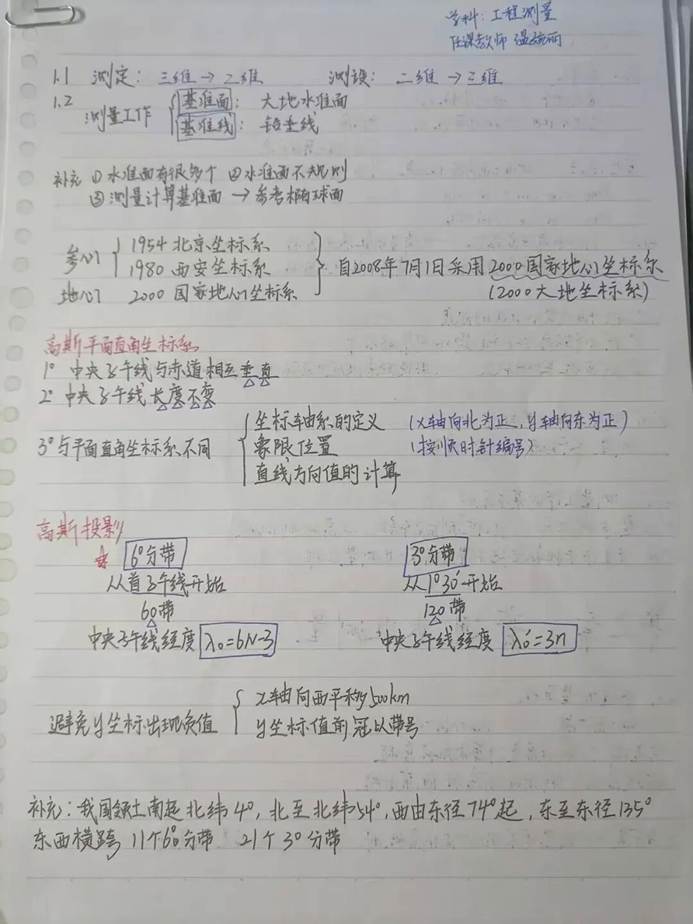 学科：工程测量
任课教师 温婉丽
1.1 测定：三维→二维 测设：二维→三维
1.2 测量工作 基准面：大地水准面
基准线：铅垂线
补充 ①水准面有很多个 ②水准面不规则
③测量计算基准面→参考椭球面
参心 1954北京坐标系
1980西安坐标系
地心 2000国家地心坐标系
自2008年7月1日采用2000国家地心坐标系
(2000大地坐标系)
高斯平面直角坐标系
1° 中央子午线与赤道相互垂直
2° 中央子午线长度不变
3°与平面直角坐标系不同 坐标轴系的定义 (x轴向北为正，y轴向东为正)
象限位置 (按顺时针编号)
直线方向值的计算
高斯投影
☆ 6°分带 3°分带
从首子午线开始 从1°30′开始
60带 120带
中央子午线经度 λ₀=6N-3 中央子午线经度 λ₀′=3n
避免y坐标出现负值 x轴向西平移500km
y坐标值前冠以带号
补充：我国领土南起北纬4°，北至北纬54°，西由东径74°起，东至东径135°
东西横跨 11个6°分带 21个3°分带